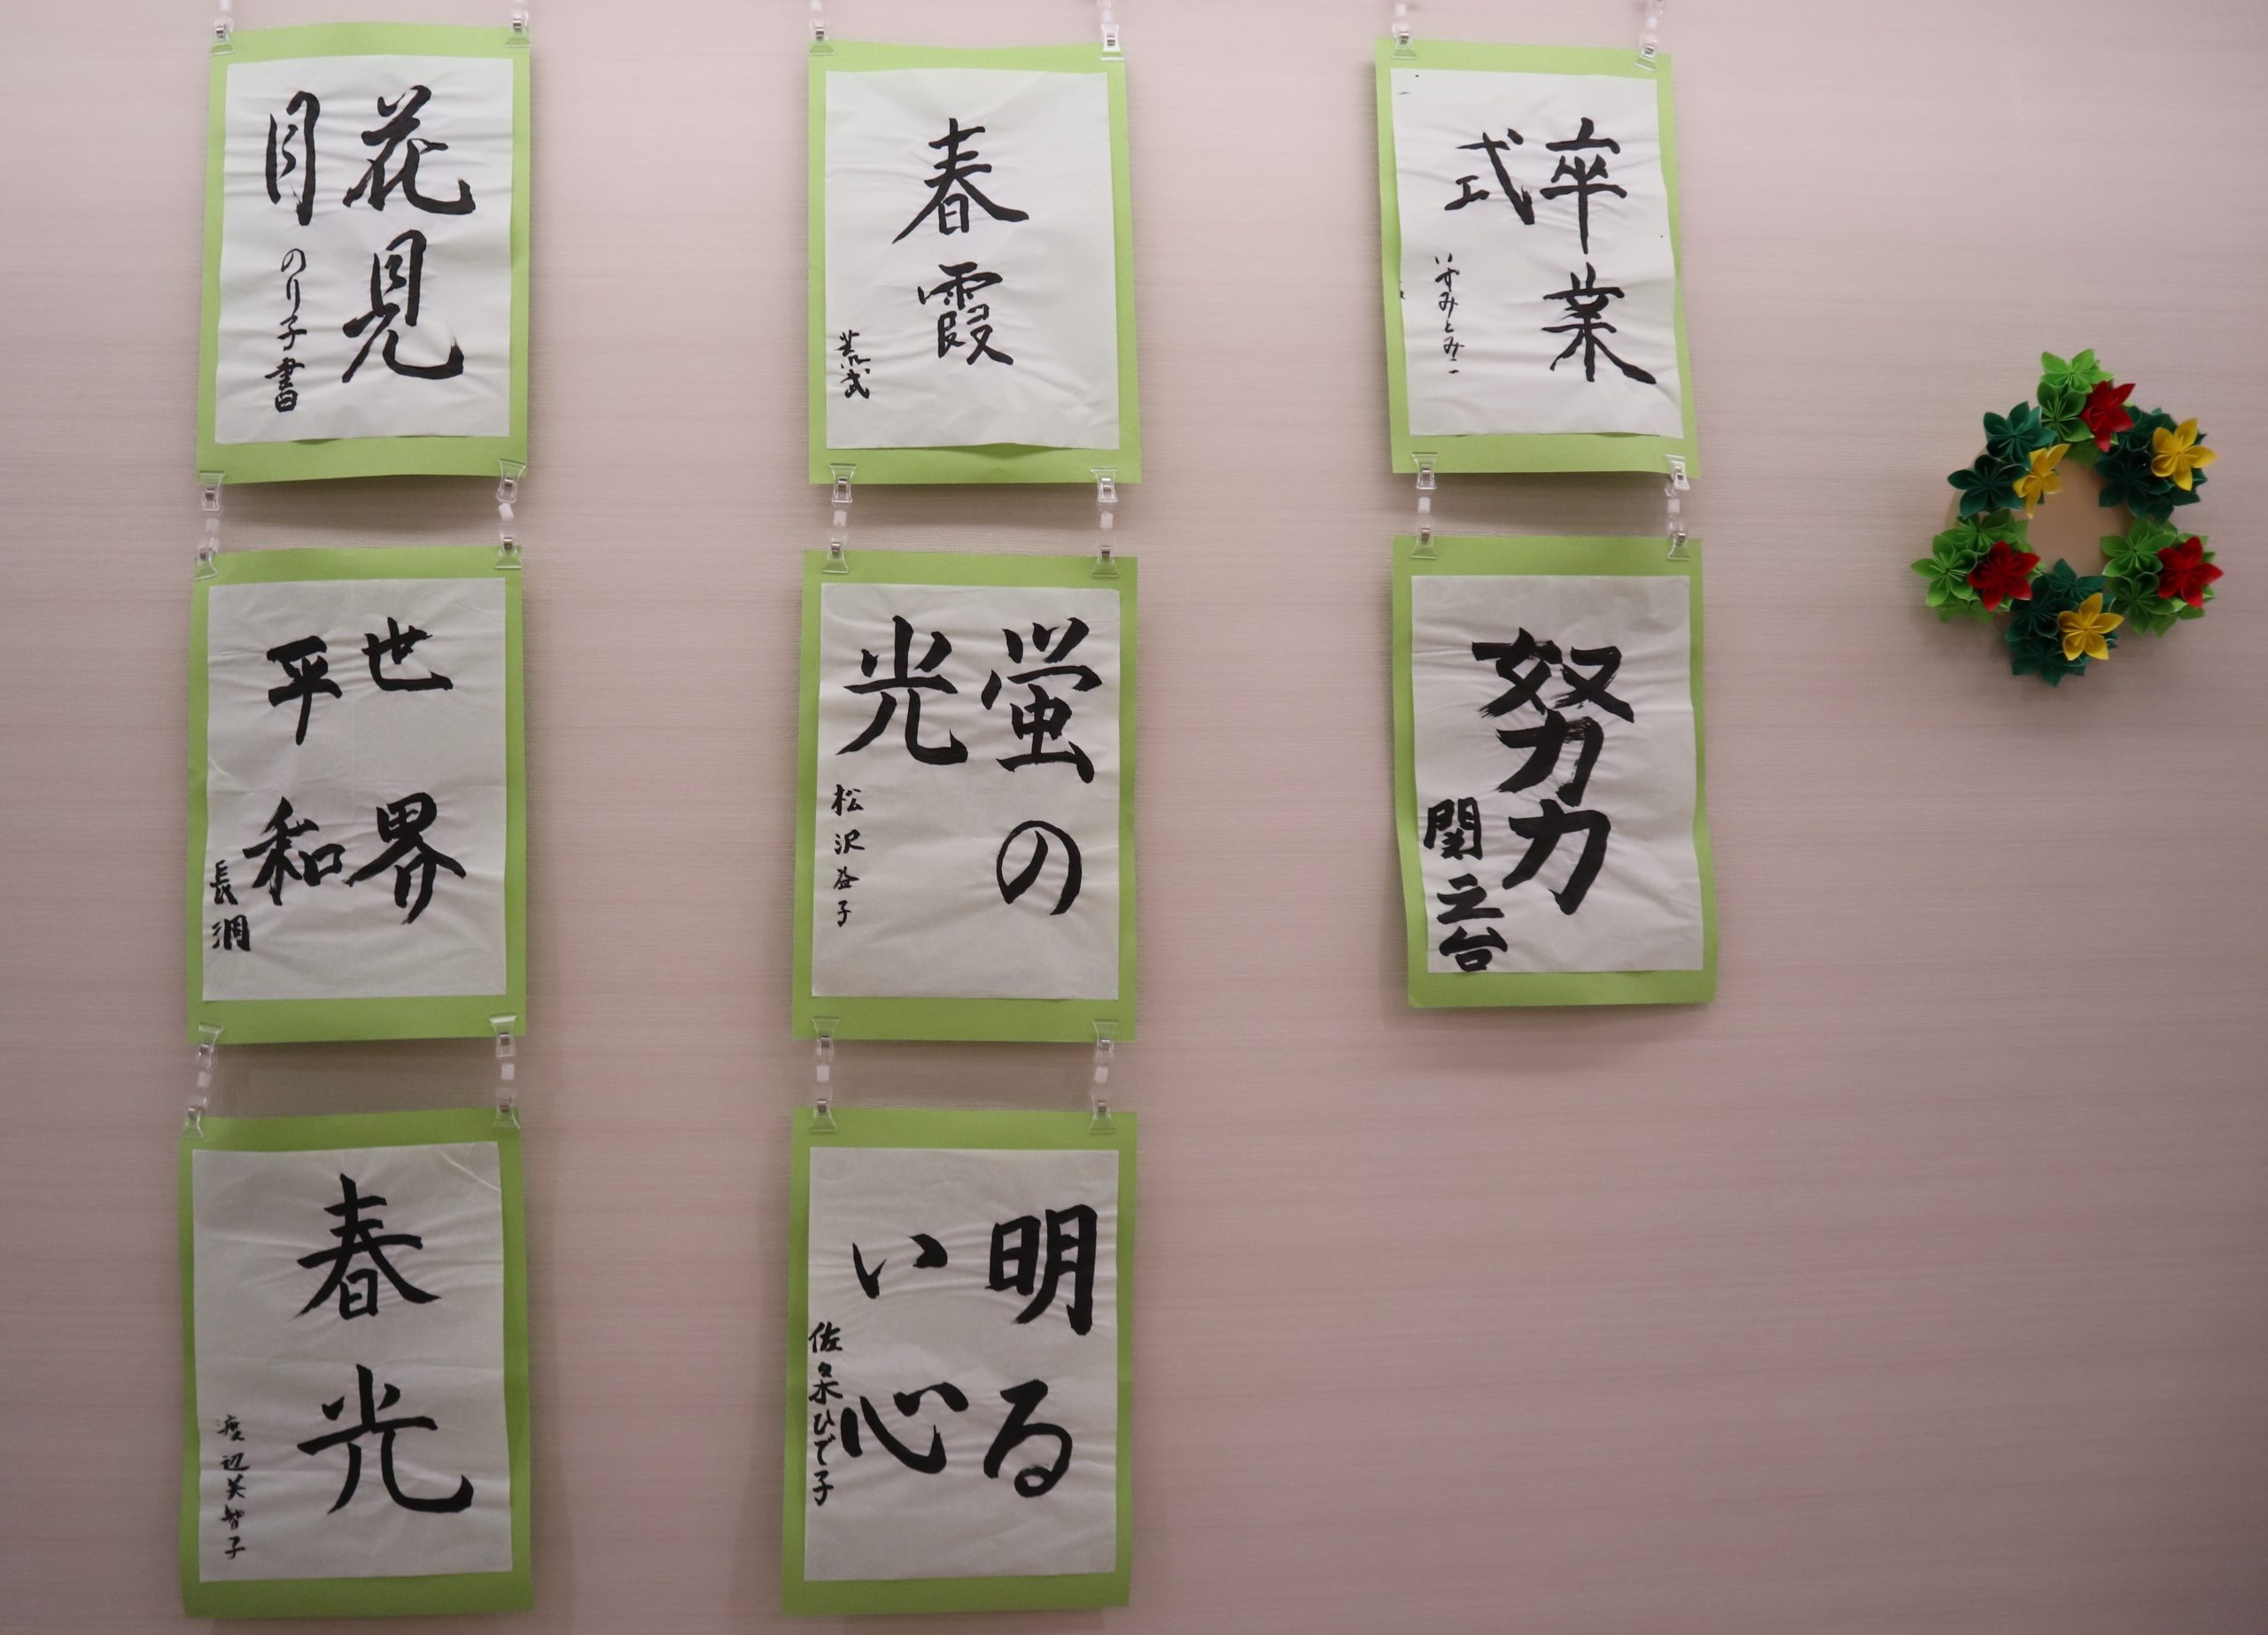 花見
月
のり子書
世界
平和
長
春光
渡辺美智子
春霞
荒武
蛍の
光
松沢益子
明る
い心
佐泉ひで子
卒業
式
いずみとみ
努力
関